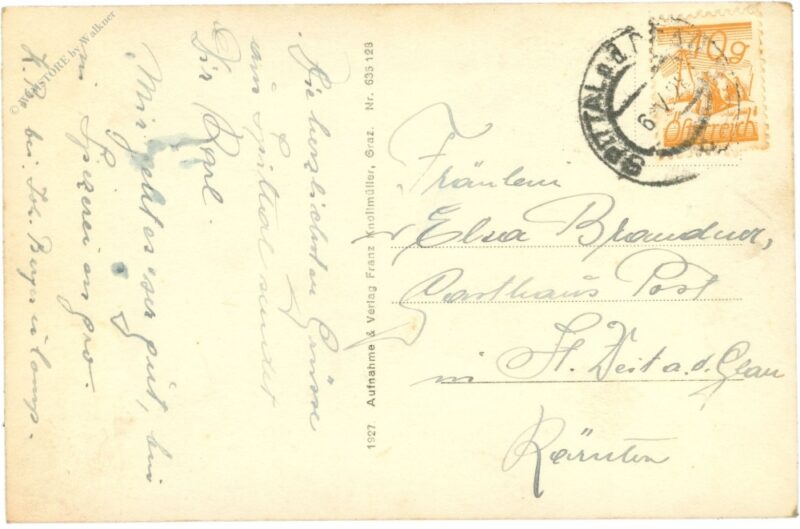 Die herzlichsten Grüsse
aus Spittal sendet
Dir Karl.
Mir geht es sehr gut, bin
in Spezerei en gros.
K. B. bei Joh. Berger u. Comp.
1927 Aufnahme & Verlag Franz Knollmüller, Graz. Nr. 635 123
SPITTAL a.d.
10g
Österreich
Fräulein
Elsa Brandner,
Gasthaus Post
in St. Veit a. d. Glan
Kärnten
STORE by Walkner